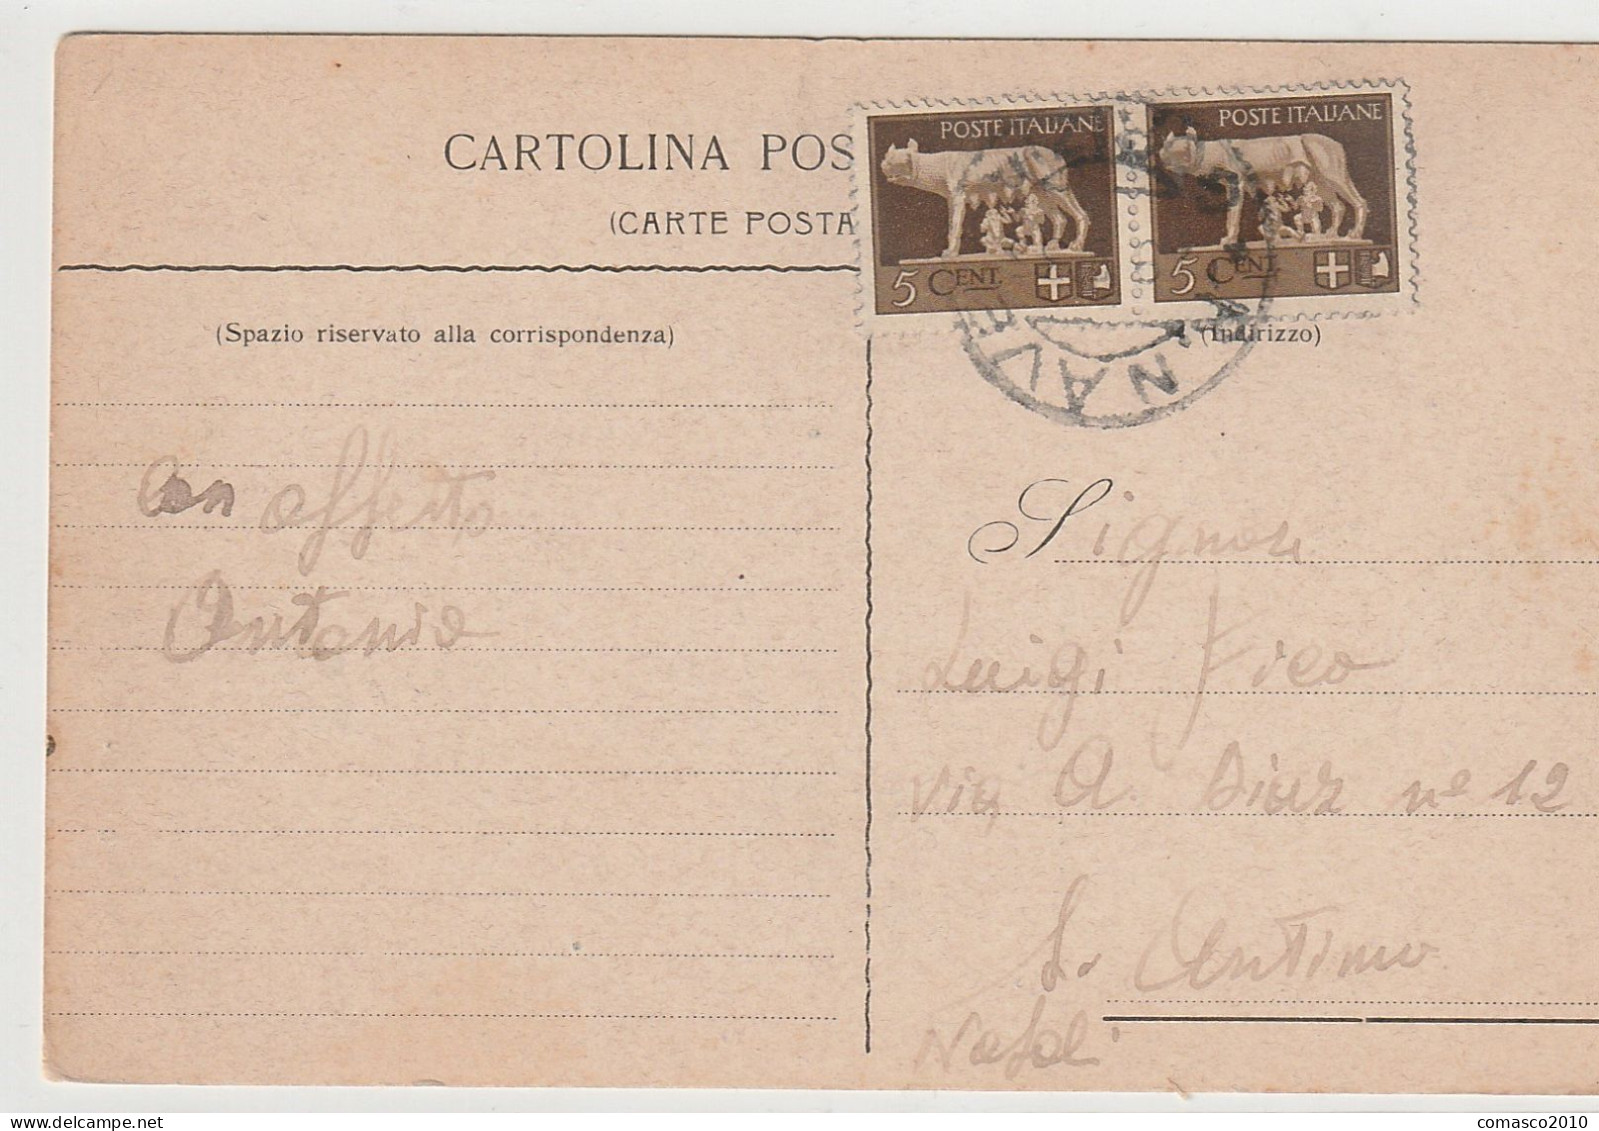 CARTOLINA POS
(CARTE POSTA
POSTE ITALIANE
5 CENT.
POSTE ITALIANE
5 CENT.
(Spazio riservato alla corrispondenza)
(Indirizzo)
Con affetto
Antonio
Signore
Luigi Fico
Via A. Diaz nº 12
S. Antimo
Napoli
comasco2010